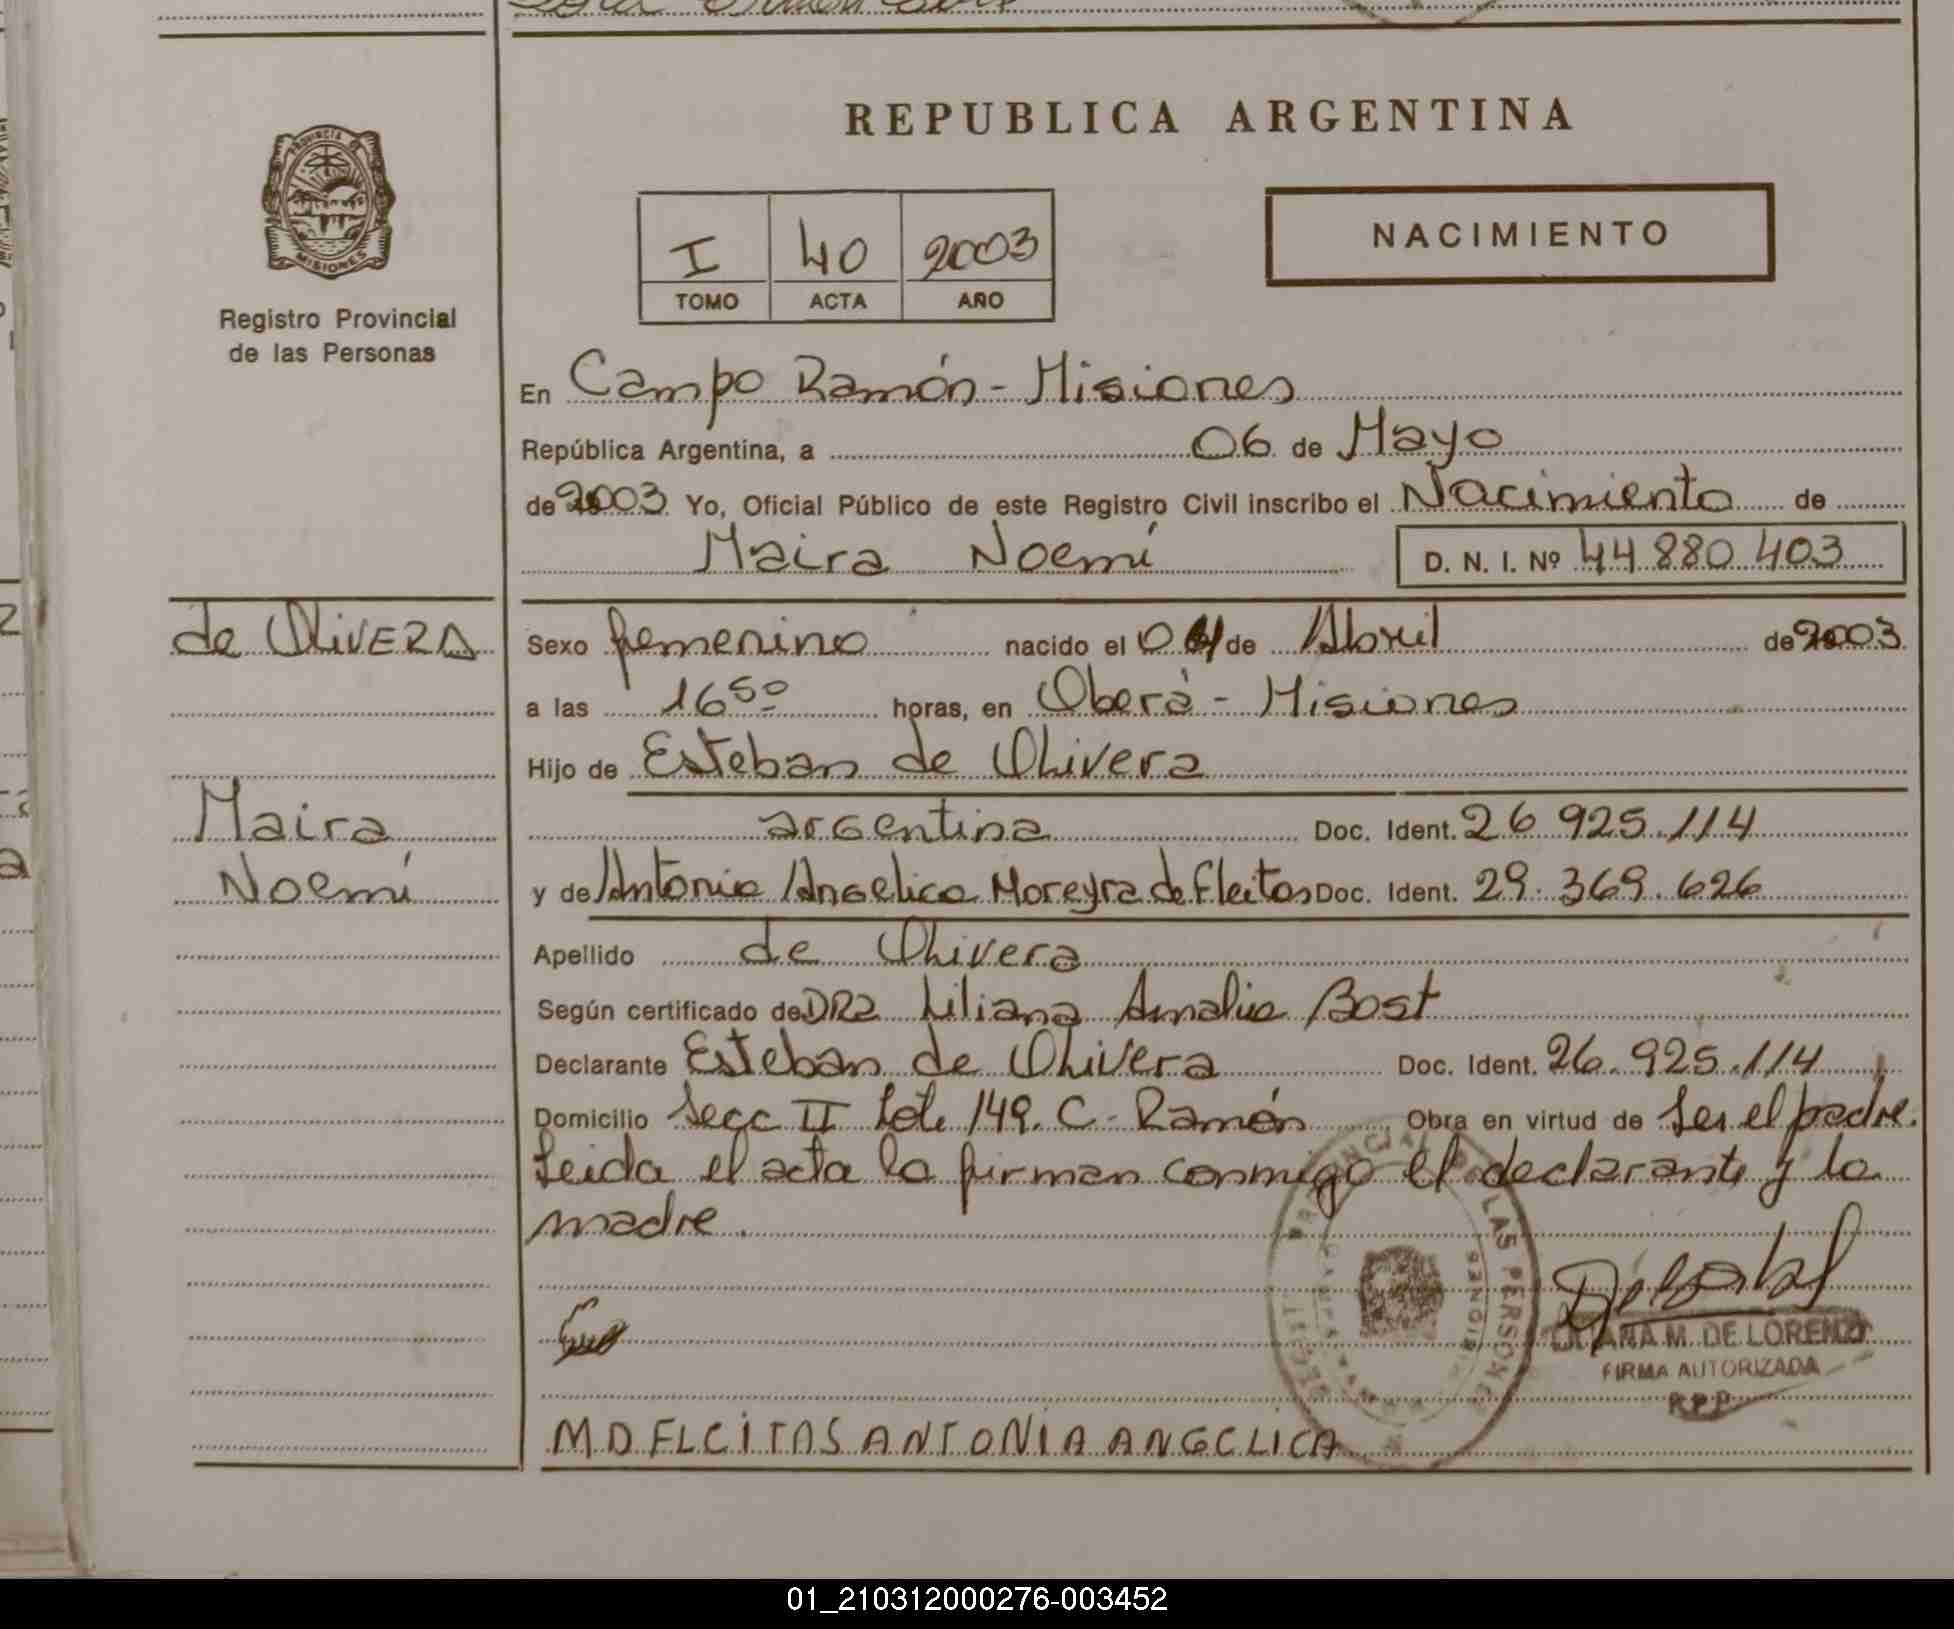 REPUBLICA ARGENTINA
PROVINCIA DE
MISIONES
Registro Provincial
de las Personas
I 40 2003
TOMO ACTA AÑO
NACIMIENTO
En Campo Ramón - Misiones
República Argentina, a 06 de Mayo
de 2003 Yo, Oficial Público de este Registro Civil inscribo el Nacimiento de
Maira Noemí D. N. I. Nº 44 880 403
de OliVERA
Maira
Noemí
Sexo femenino nacido el de Abril de 2003
a las 16 50 horas, en Oberá - Misiones
Hijo de Esteban de Olivera
argentina Doc. Ident. 26 925.114
y de Antonia Angelica Moreyra de Fleitas Doc. Ident. 29.369.626
Apellido de Olivera
Según certificado de DRa Liliana Amalia Bost
Declarante Esteban de Olivera Doc. Ident. 26.925.114
Domicilio Secc II Lote 149. C. Ramón Obra en virtud de Ser el padre.
Leida el acta la firman conmigo el declarante y la
madre.
LILIANA M. DE LORENZI
FIRMA AUTORIZADA
R.P.P.
M D FLCITAS ANTONIA ANGCLICA
01_210312000276-003452